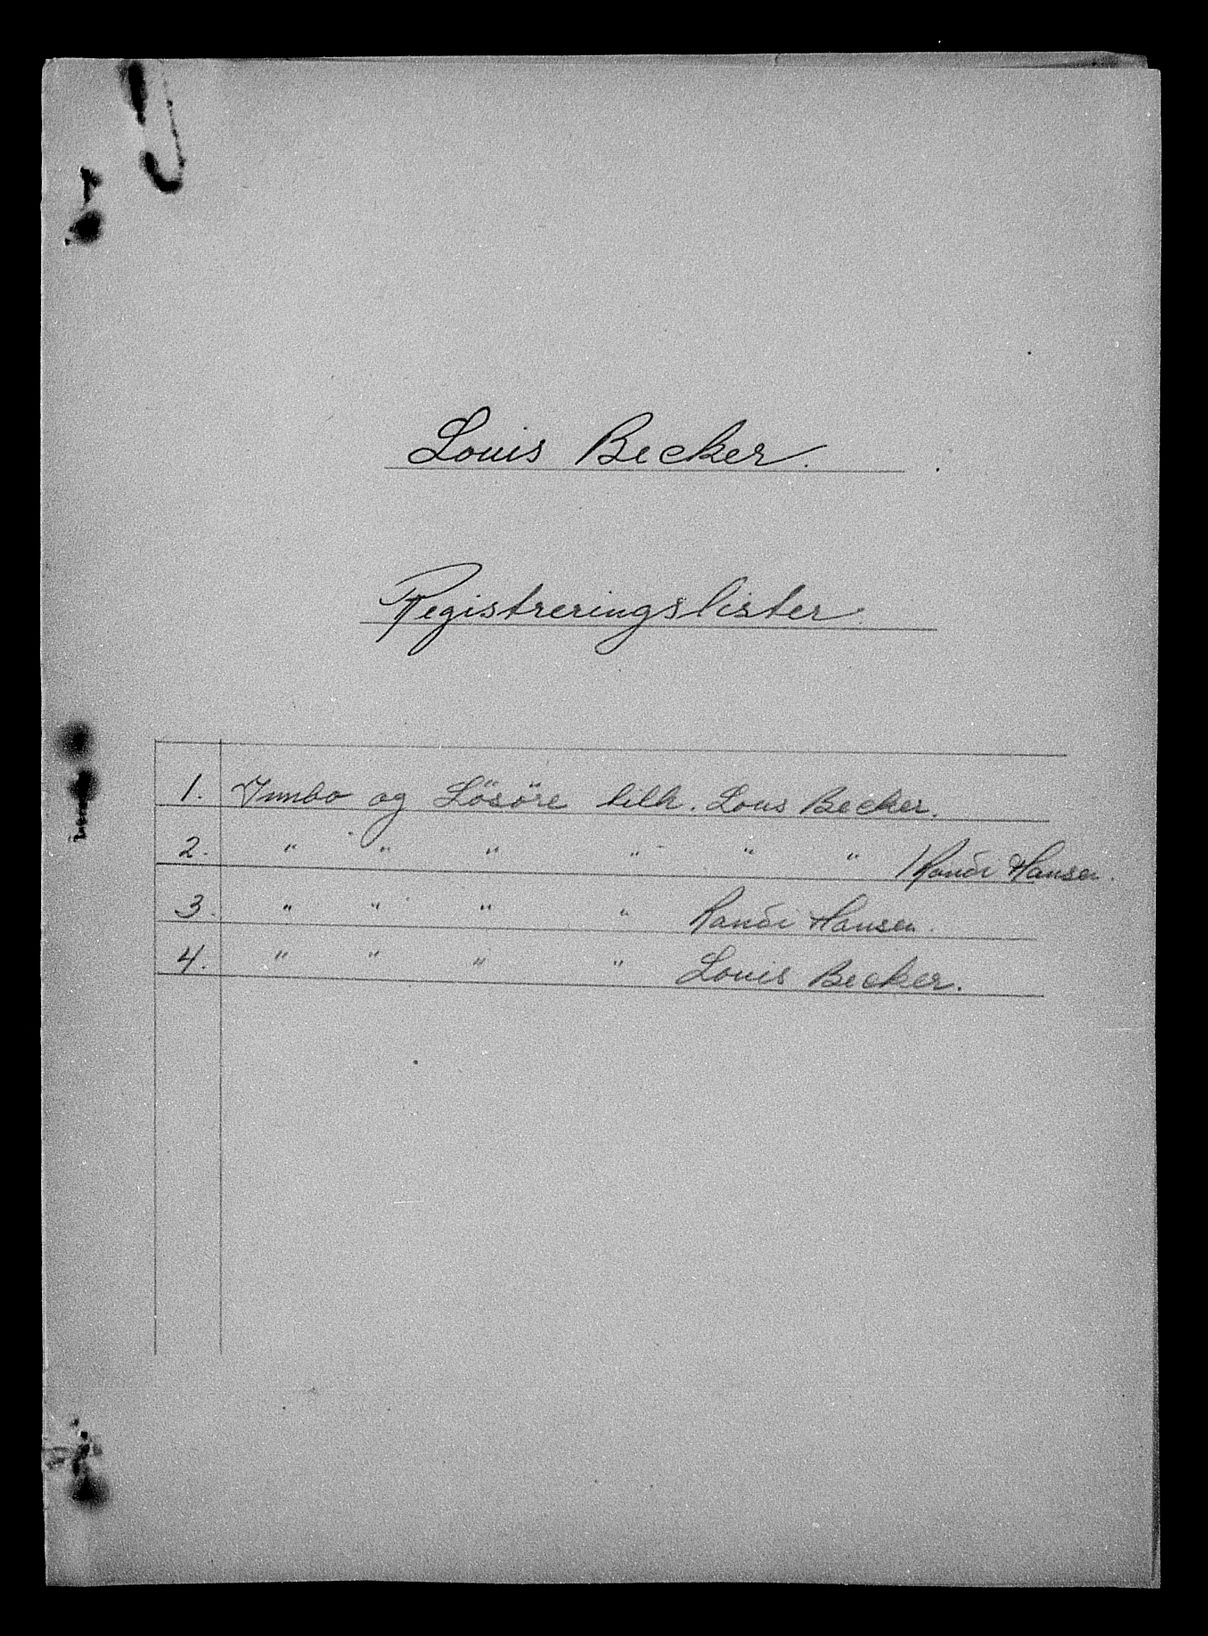 Louis Becker.
Registreringslister.
1. Innbo og Lösöre tilh. Lous Becker.
2. " " " " " " /Randi Hansen.
3. " " " " Randi Hansen.
4. " " " " Louis Becker.